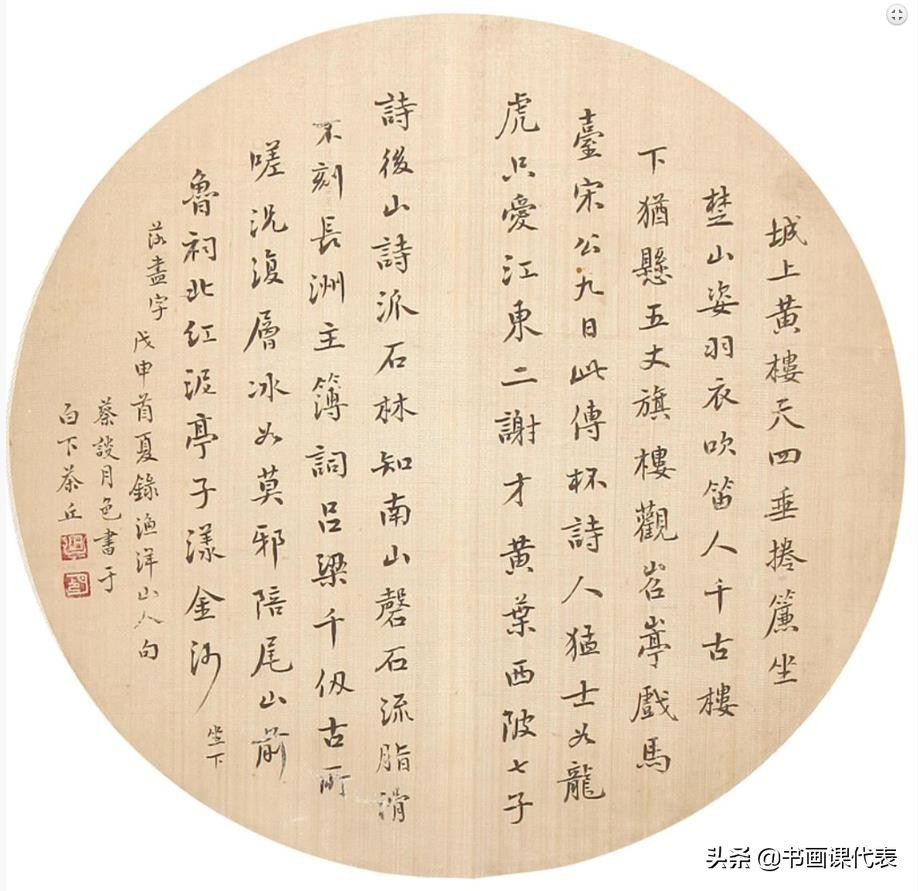 城上黄樓天四垂捲簾坐
楚山姿羽衣吹笛人千古樓
下猶懸五丈旗樓觀岧嵉戲馬
臺宋公九日此傳杯詩人猛士如龍
虎只愛江東二謝才黄葉西陂七子
詩後山詩派石林知南山磬石流脂滑
不刻長洲主簿詞吕梁千仭古所
嗟況復層冰如莫邪陪尾山前
魯祠北紅泥亭子漾金沙 坐下
落盡字 戊申首夏錄漁洋山人句
蔡談月色書于
白下茶丘
头条 @书画课代表